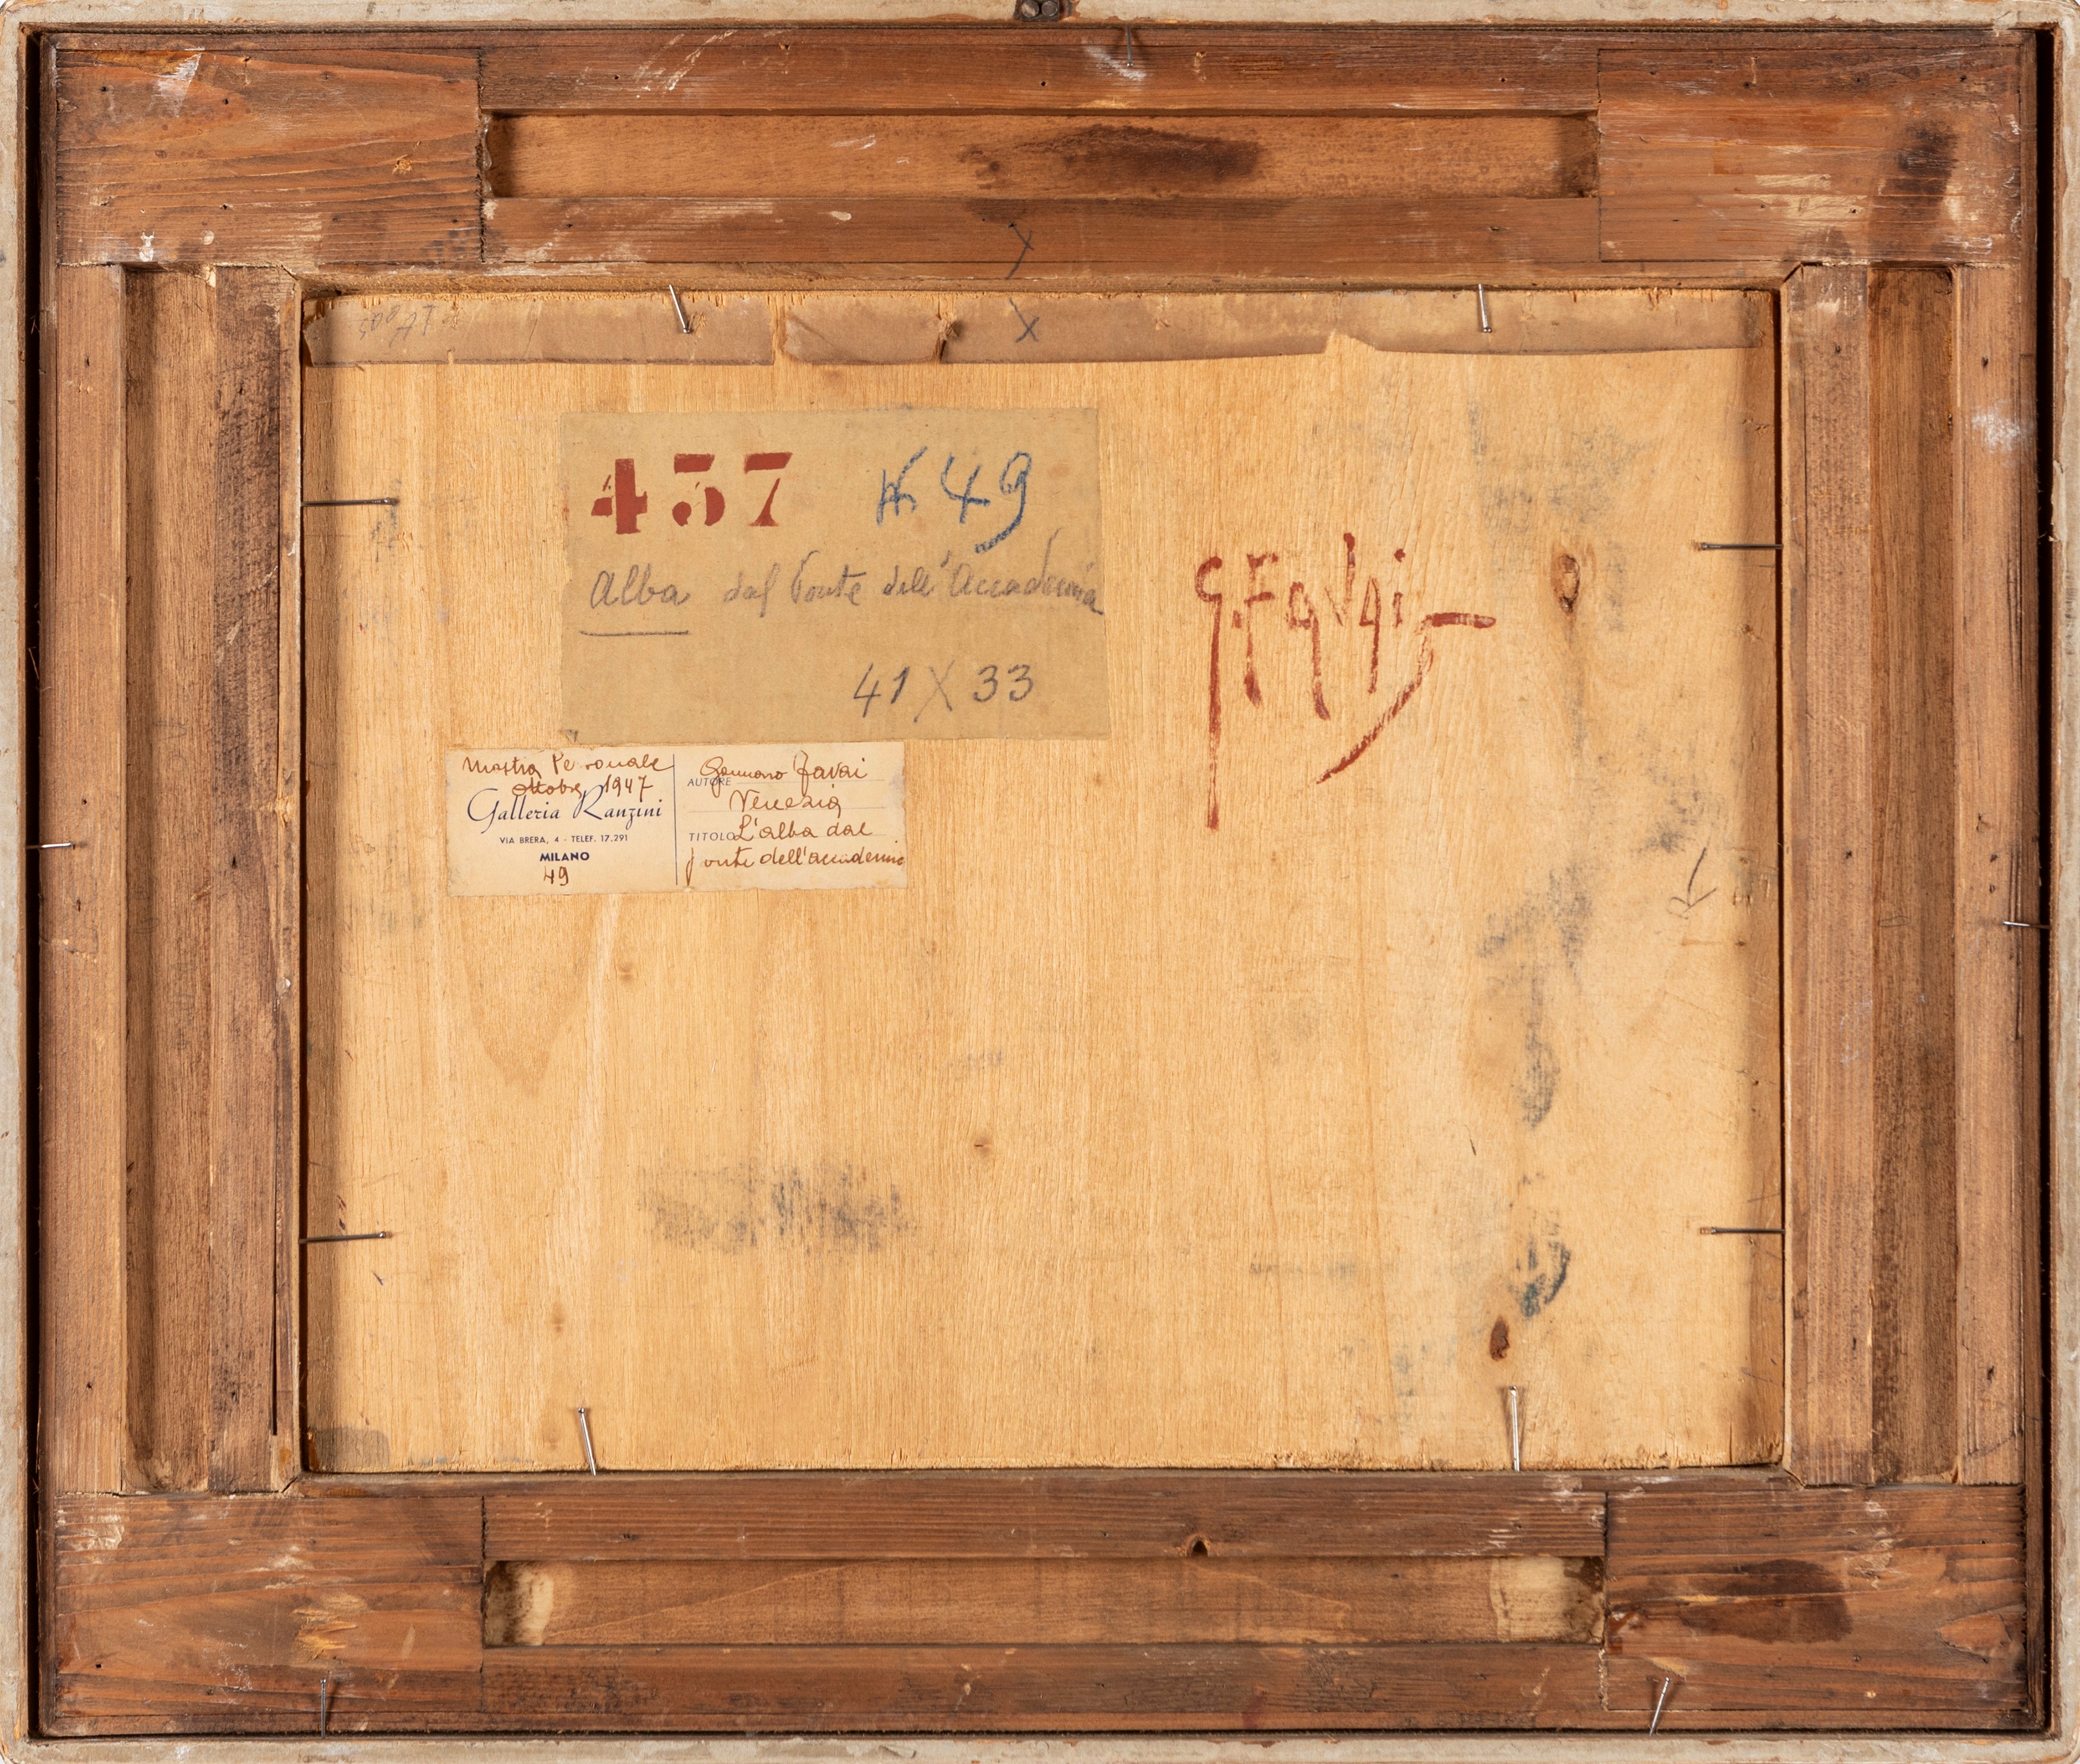 437 N 49
Alba dal Ponte dell'Accademia
41 X 33
G. Favai
Mostra Personale
ottobre 1947
Galleria Ranzini
VIA BRERA, 4 - TELEF. 17.291
MILANO
49
AUTORE Gennaro Favai
Venezia
TITOLO L'alba dal
ponte dell'accademia
X
X